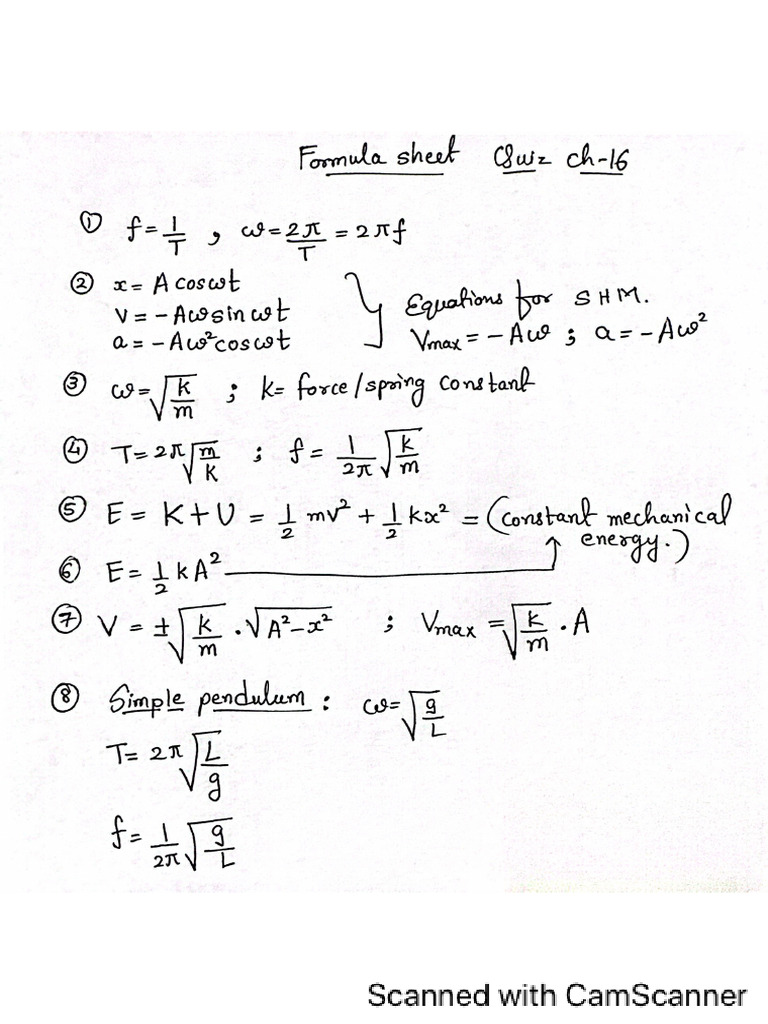 Formula sheet Quiz ch-16
① f = 1/T , ω = 2π/T = 2πf
② x = A cosωt
v = -Aω sin ωt
a = -Aω² cosωt
} Equations for SHM.
Vmax = -Aω ; a = -Aω²
③ ω = √(k/m) ; k = force/spring constant
④ T = 2π√(m/k) ; f = 1/2π √(k/m)
⑤ E = K + U = 1/2 mv² + 1/2 kx² = (constant mechanical energy.)
⑥ E = 1/2 kA²
⑦ V = ±√(k/m) · √(A²-x²) ; Vmax = √(k/m) · A
⑧ Simple pendulum : ω = √(g/L)
T = 2π√(L/g)
f = 1/2π √(g/L)
Scanned with CamScanner